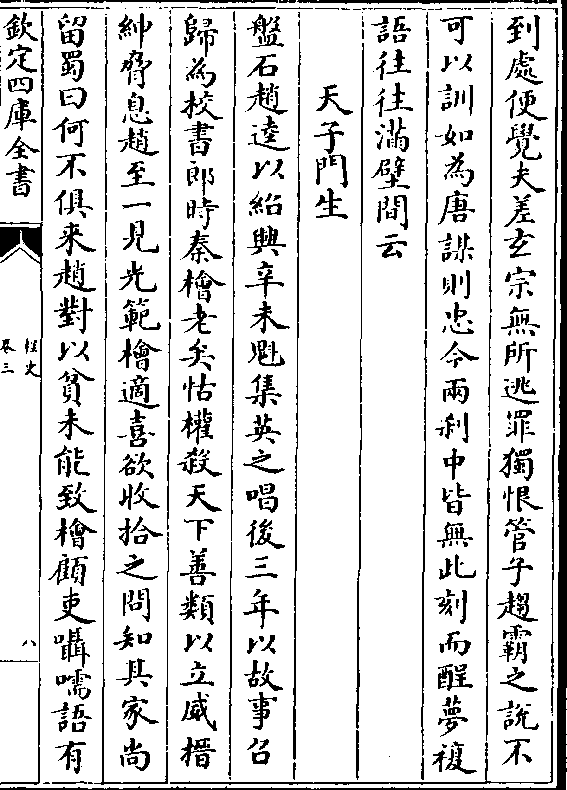 到處便覺夫差玄宗無所逃罪獨恨管子趨霸之說不
可以訓如為唐謀則忠今兩刹中皆無此刻而醒夢複
語往往滿壁間云
天子門生
盤石趙逵以紹興辛未魁集英之唱後三年以故事召
歸為校書郎時秦檜老矣怙權殺天下善類以立威搢
紳脅息趙至一見光範檜適喜欲收拾之問知其家尚
留蜀曰何不俱来趙對以貧未能致檜顧吏囁嚅語有
欽定四庫全書
桯史
卷三
八